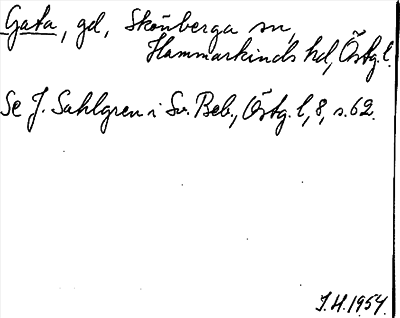 Gata, gd, Skönberga sn,
Hammarkinds hd, Östg. l.
Se J. Sahlgren i Sv. Beb., Östg. l, 8, s. 62.
J.H. 1954.